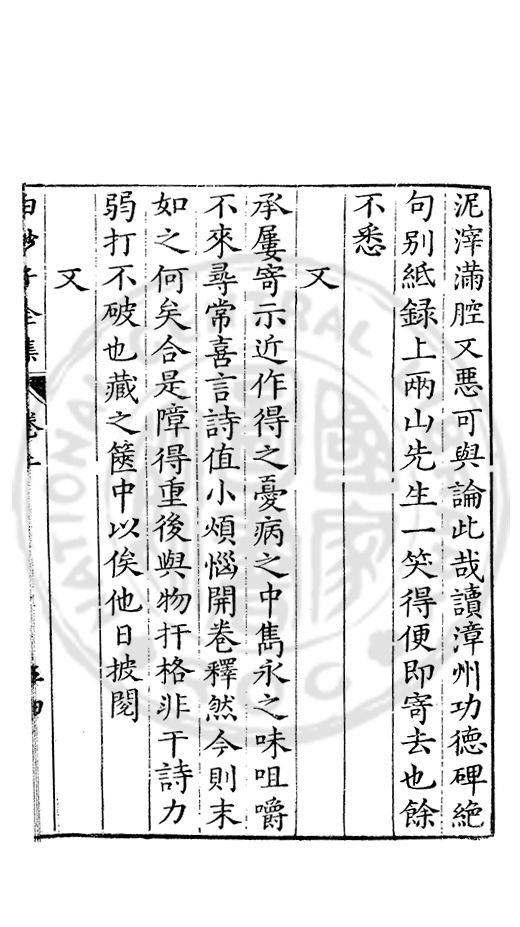 泥滓滿腔又惡可與論此哉讀漳州功德碑絶
句别紙録上兩山先生一笑得便即寄去也餘
不悉
又
承屢寄示近作得之憂病之中雋永之味咀嚼
不來尋常喜言詩值小煩惱開卷釋然今則末
如之何矣合是障得重後與物扞格非干詩力
弱打不破也藏之篋中以俟他日披閱
又